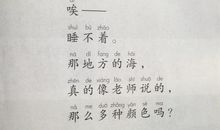 唉——
shuì bù zháo
睡不着。
nà dì fang de hǎi
那地方的海，
zhēn de xiàng lǎo shī shuō de
真的像老师说的，
nà me duō zhǒng yán sè ma
那么多种颜色吗？